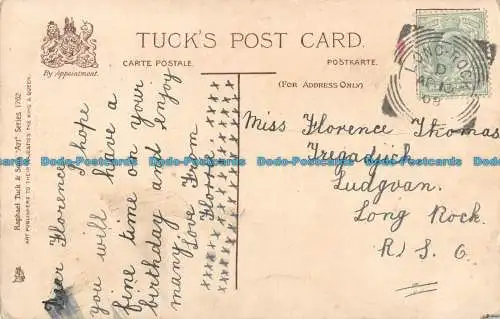 TUCK'S POST CARD.
CARTE POSTALE.
POSTKARTE.
By Appointment.
(FOR ADDRESS ONLY)
LONG-ROCK
D
AP 10
05
Raphael Tuck & Sons' "Art" Series 1762
ART PUBLISHERS TO THEIR MAJESTIES THE KING & QUEEN.
Dear Florence I hope
you will have a
fine time on your
birthday and enjoy
many. Love From
Florrie
xxxxxxxxxx
xxxxxxxxxxxxxxxx
Miss Florence Thomas
Tregadjick
Ludgvan.
Long Rock.
R.S.O.
Dodo-Postcards Dodo-Postcards Dodo-Postcards Dodo-Postcards
Dodo-Postcards Dodo-Postcards Dodo-Postcards Dodo-Postcards